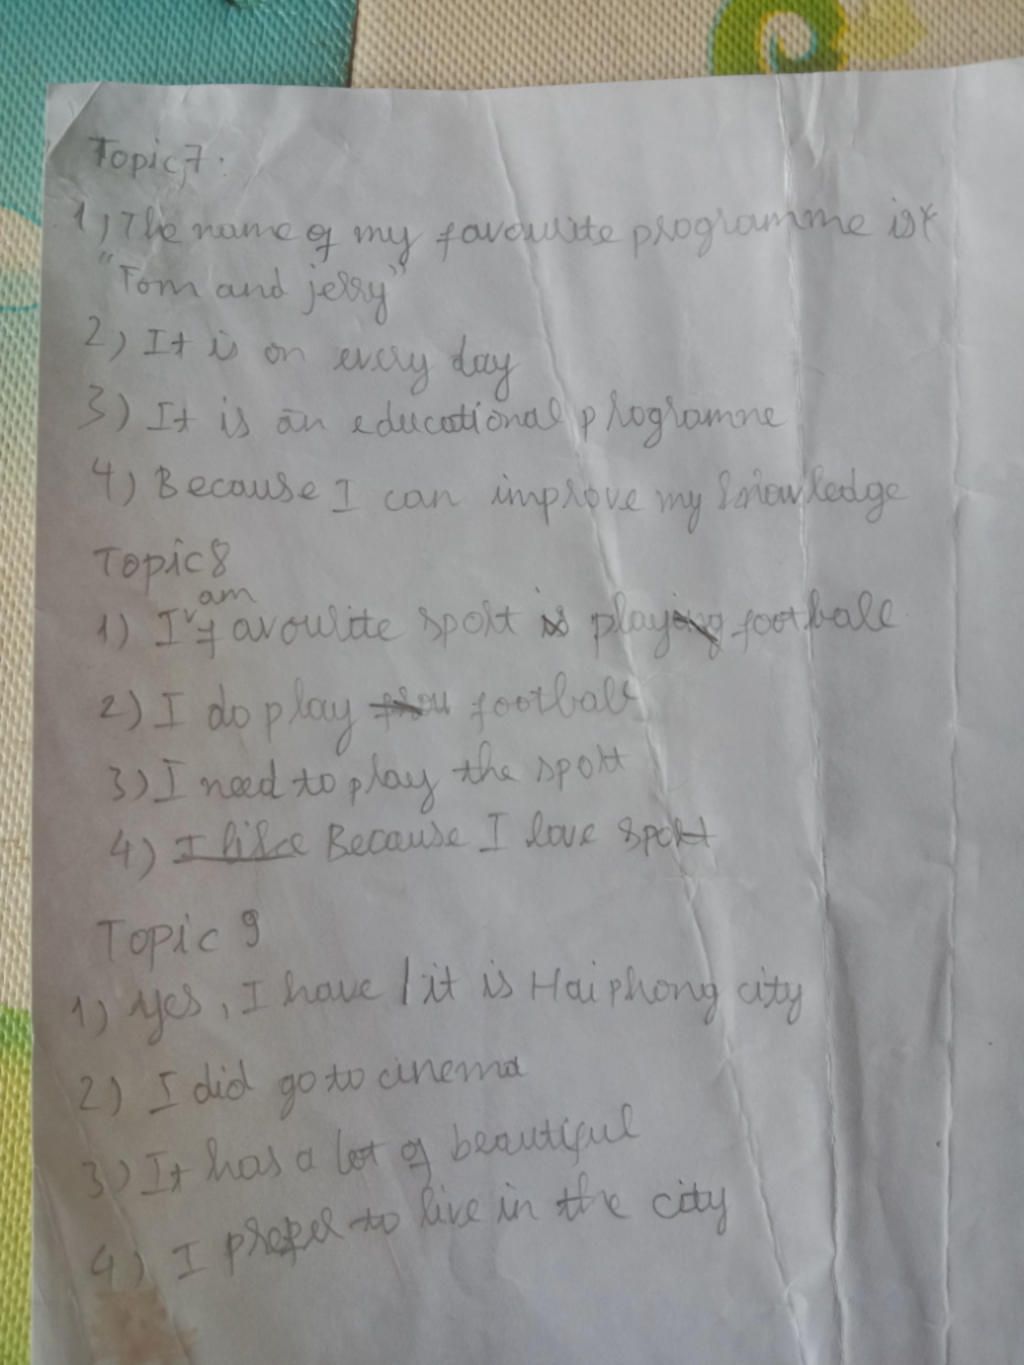 Topic 7:
1) The name of my favourite programme is
"Tom and jerry"
2) It is on every day
3) It is an educational programne
4) Because I can improve my knowledge
Topic 8
am
1) I favourite sport is playing football
2) I do play football
3) I need to play the sport
4) I like Because I love sport
Topic 9
1) Yes, I have / it is Hai phong city
2) I did go to cinema
3) It has a lot of beautiful
4) I prefer to live in the city